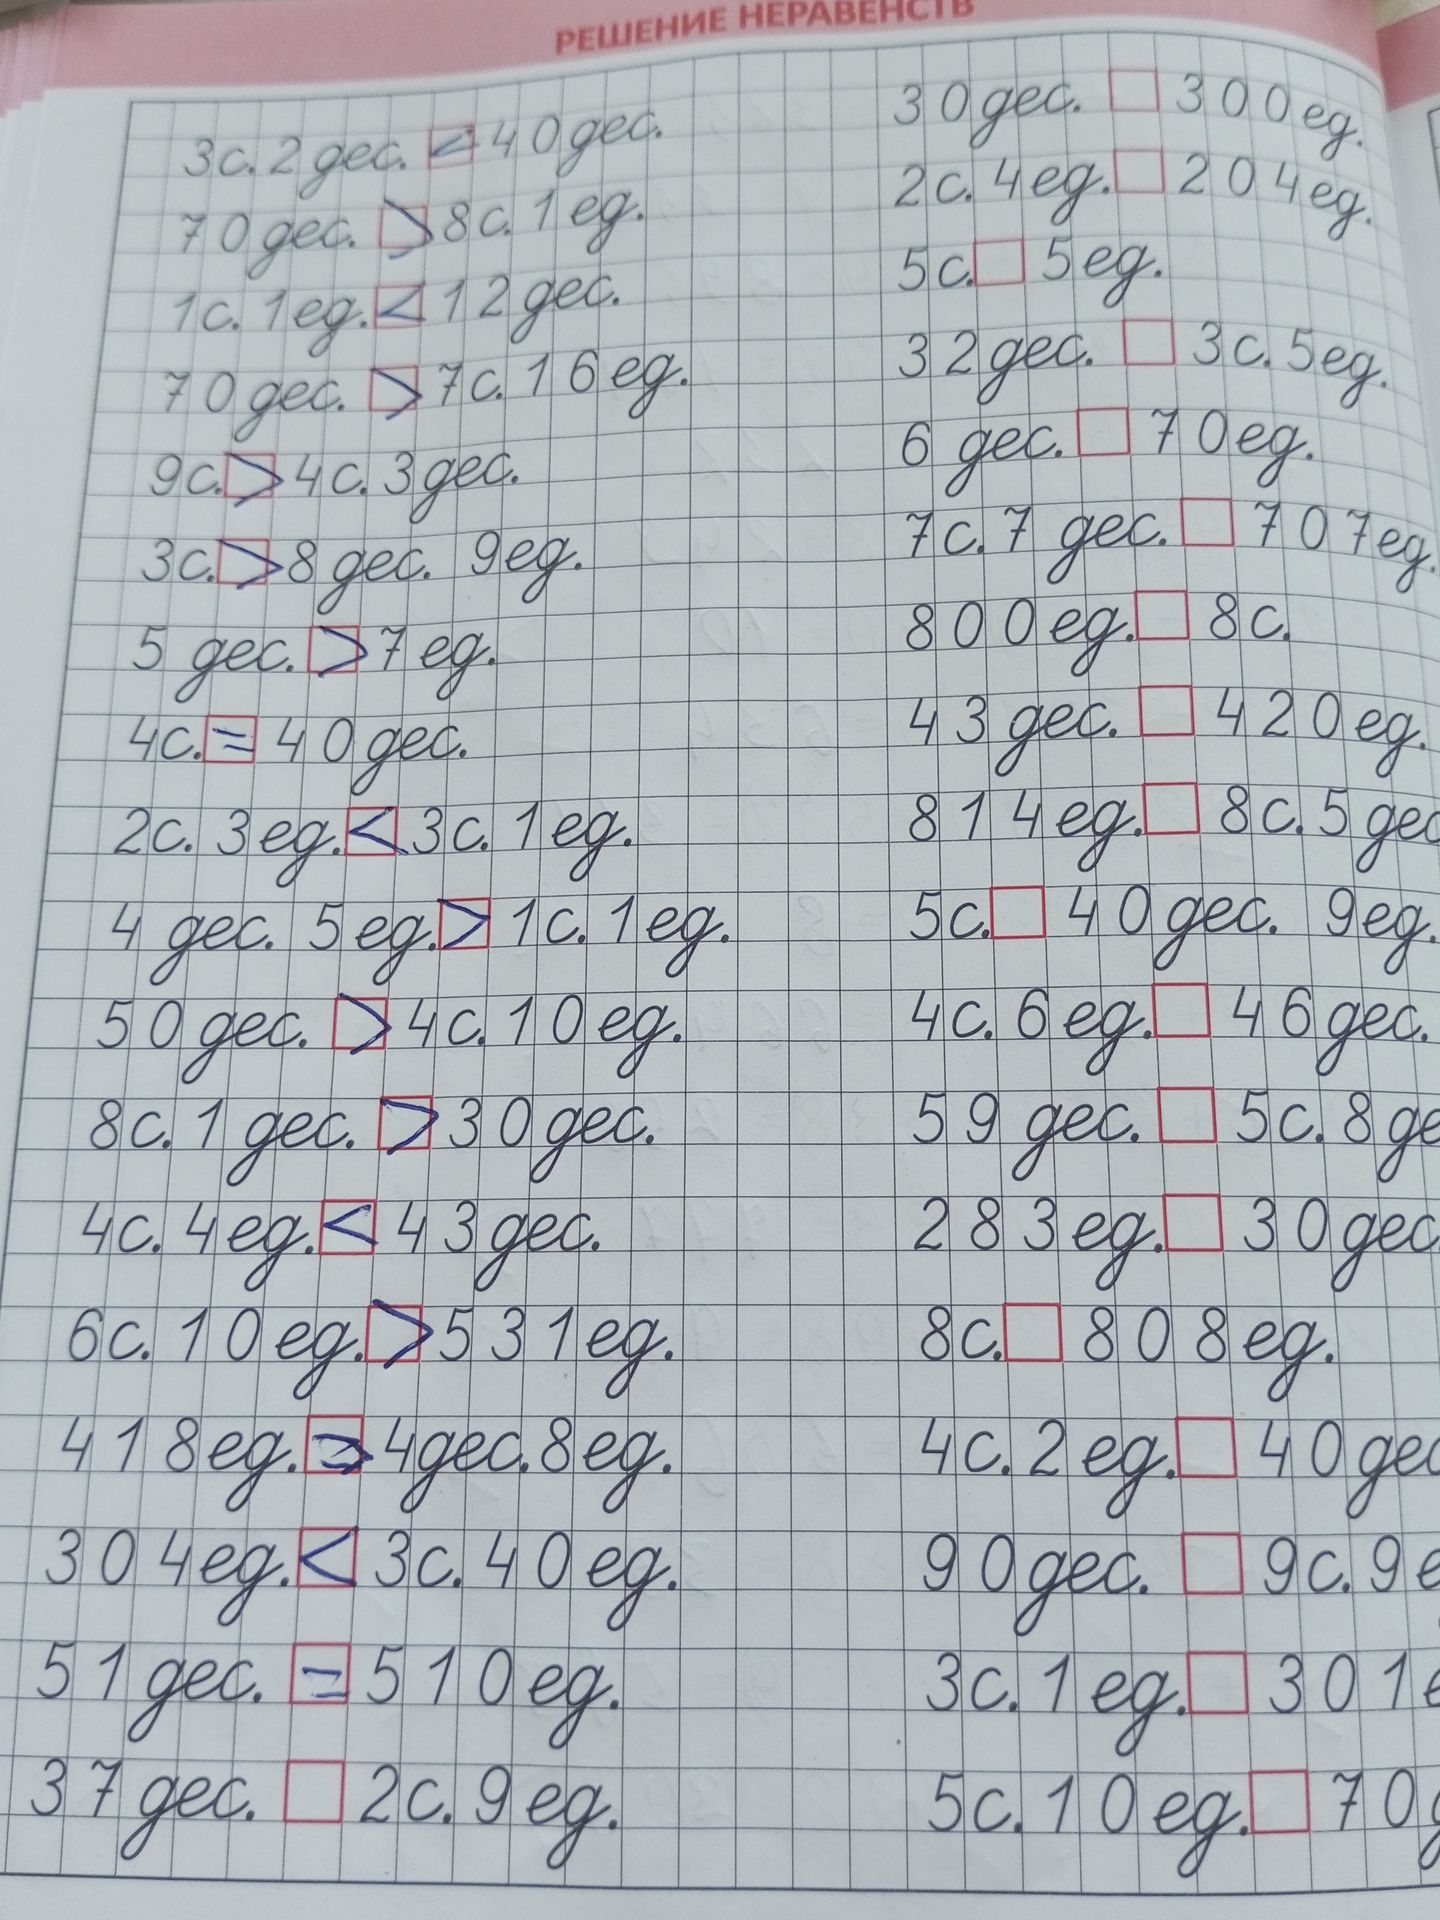 РЕШЕНИЕ НЕРАВЕНСТВ
3с. 2 дес. < 40 дес.
70 дес. > 8с. 1 ед.
1с. 1 ед. < 12 дес.
70 дес. > 7с. 16 ед.
9с. > 4с. 3 дес.
3с. > 8 дес. 9 ед.
5 дес. > 7 ед.
4с. = 40 дес.
2с. 3 ед. < 3с. 1 ед.
4 дес. 5 ед. > 1с. 1 ед.
50 дес. > 4с. 10 ед.
8с. 1 дес. > 30 дес.
4с. 4 ед. < 43 дес.
6с. 10 ед. > 531 ед.
418 ед. > 4 дес. 8 ед.
304 ед. < 3с. 40 ед.
51 дес. = 510 ед.
37 дес. □ 2с. 9 ед.
30 дес. □ 300 ед.
2с. 4 ед. □ 204 ед.
5с. □ 5 ед.
32 дес. □ 3с. 5 ед.
6 дес. □ 70 ед.
7с. 7 дес. □ 707 ед.
800 ед. □ 8с.
43 дес. □ 420 ед.
814 ед. □ 8с. 5 дес
5с. □ 40 дес. 9 ед.
4с. 6 ед. □ 46 дес.
59 дес. □ 5с. 8 де
283 ед. □ 30 дес
8с. □ 808 ед.
4с. 2 ед. □ 40 дес
90 дес. □ 9с. 9 е
3с. 1 ед. □ 301 е
5с. 10 ед. □ 70 д